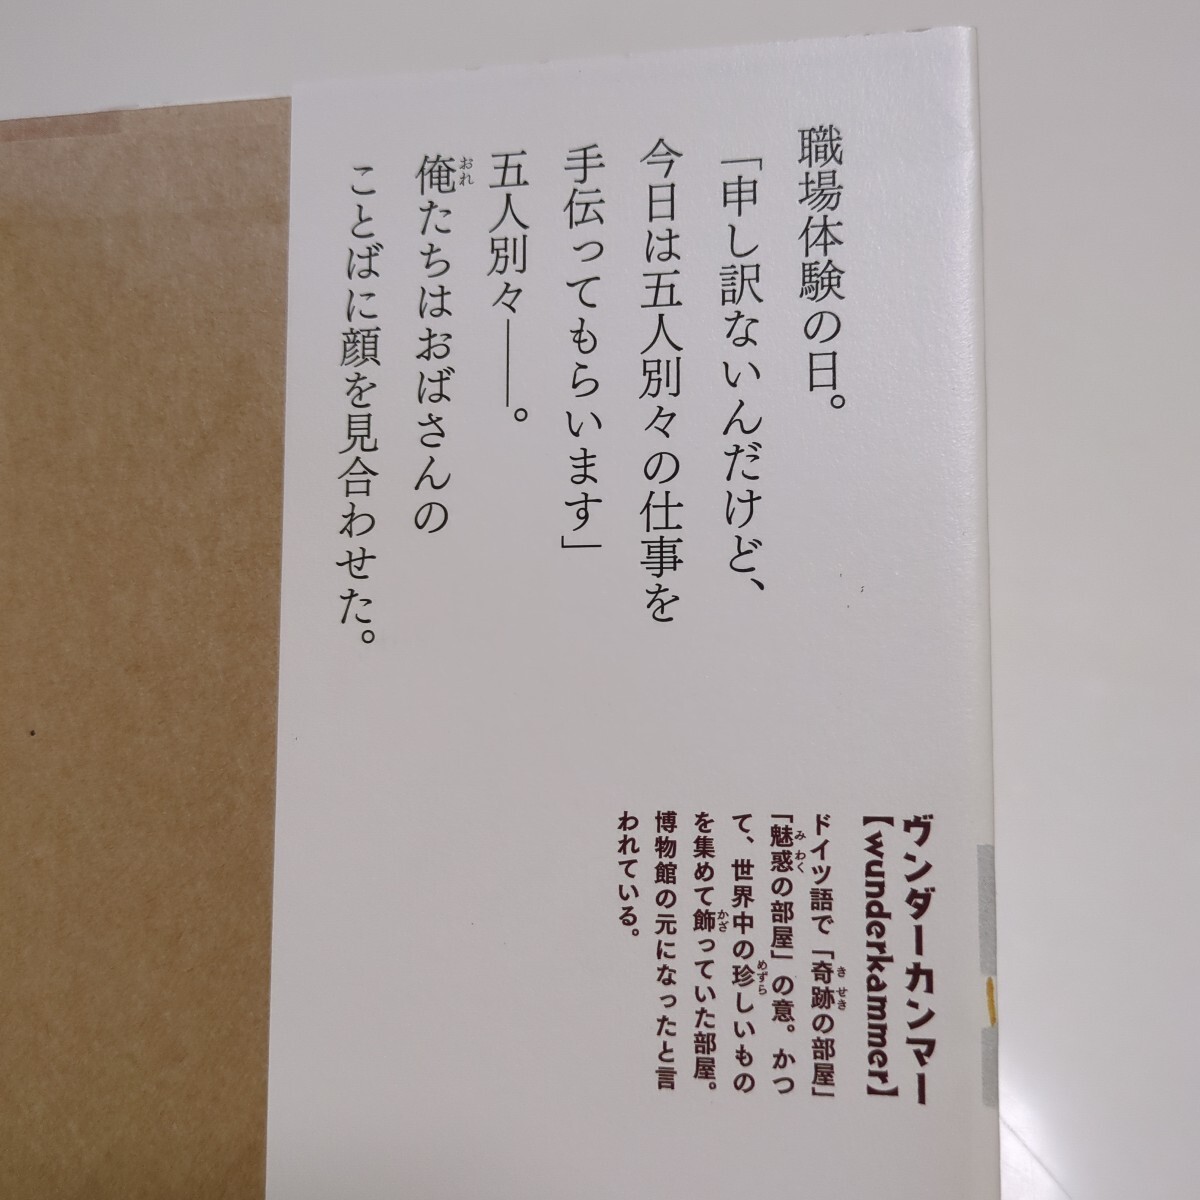 職場体験の日。
「申し訳ないんだけど、
今日は五人別々の仕事を
手伝ってもらいます」
五人別々――。
俺たちはおばさんの
ことばに顔を見合わせた。
ヴンダーカンマー
【wunderkammer】
ドイツ語で「奇跡の部屋」
「魅惑の部屋」の意。かつ
て、世界中の珍しいもの
を集めて飾っていた部屋。
博物館の元になったと言
われている。